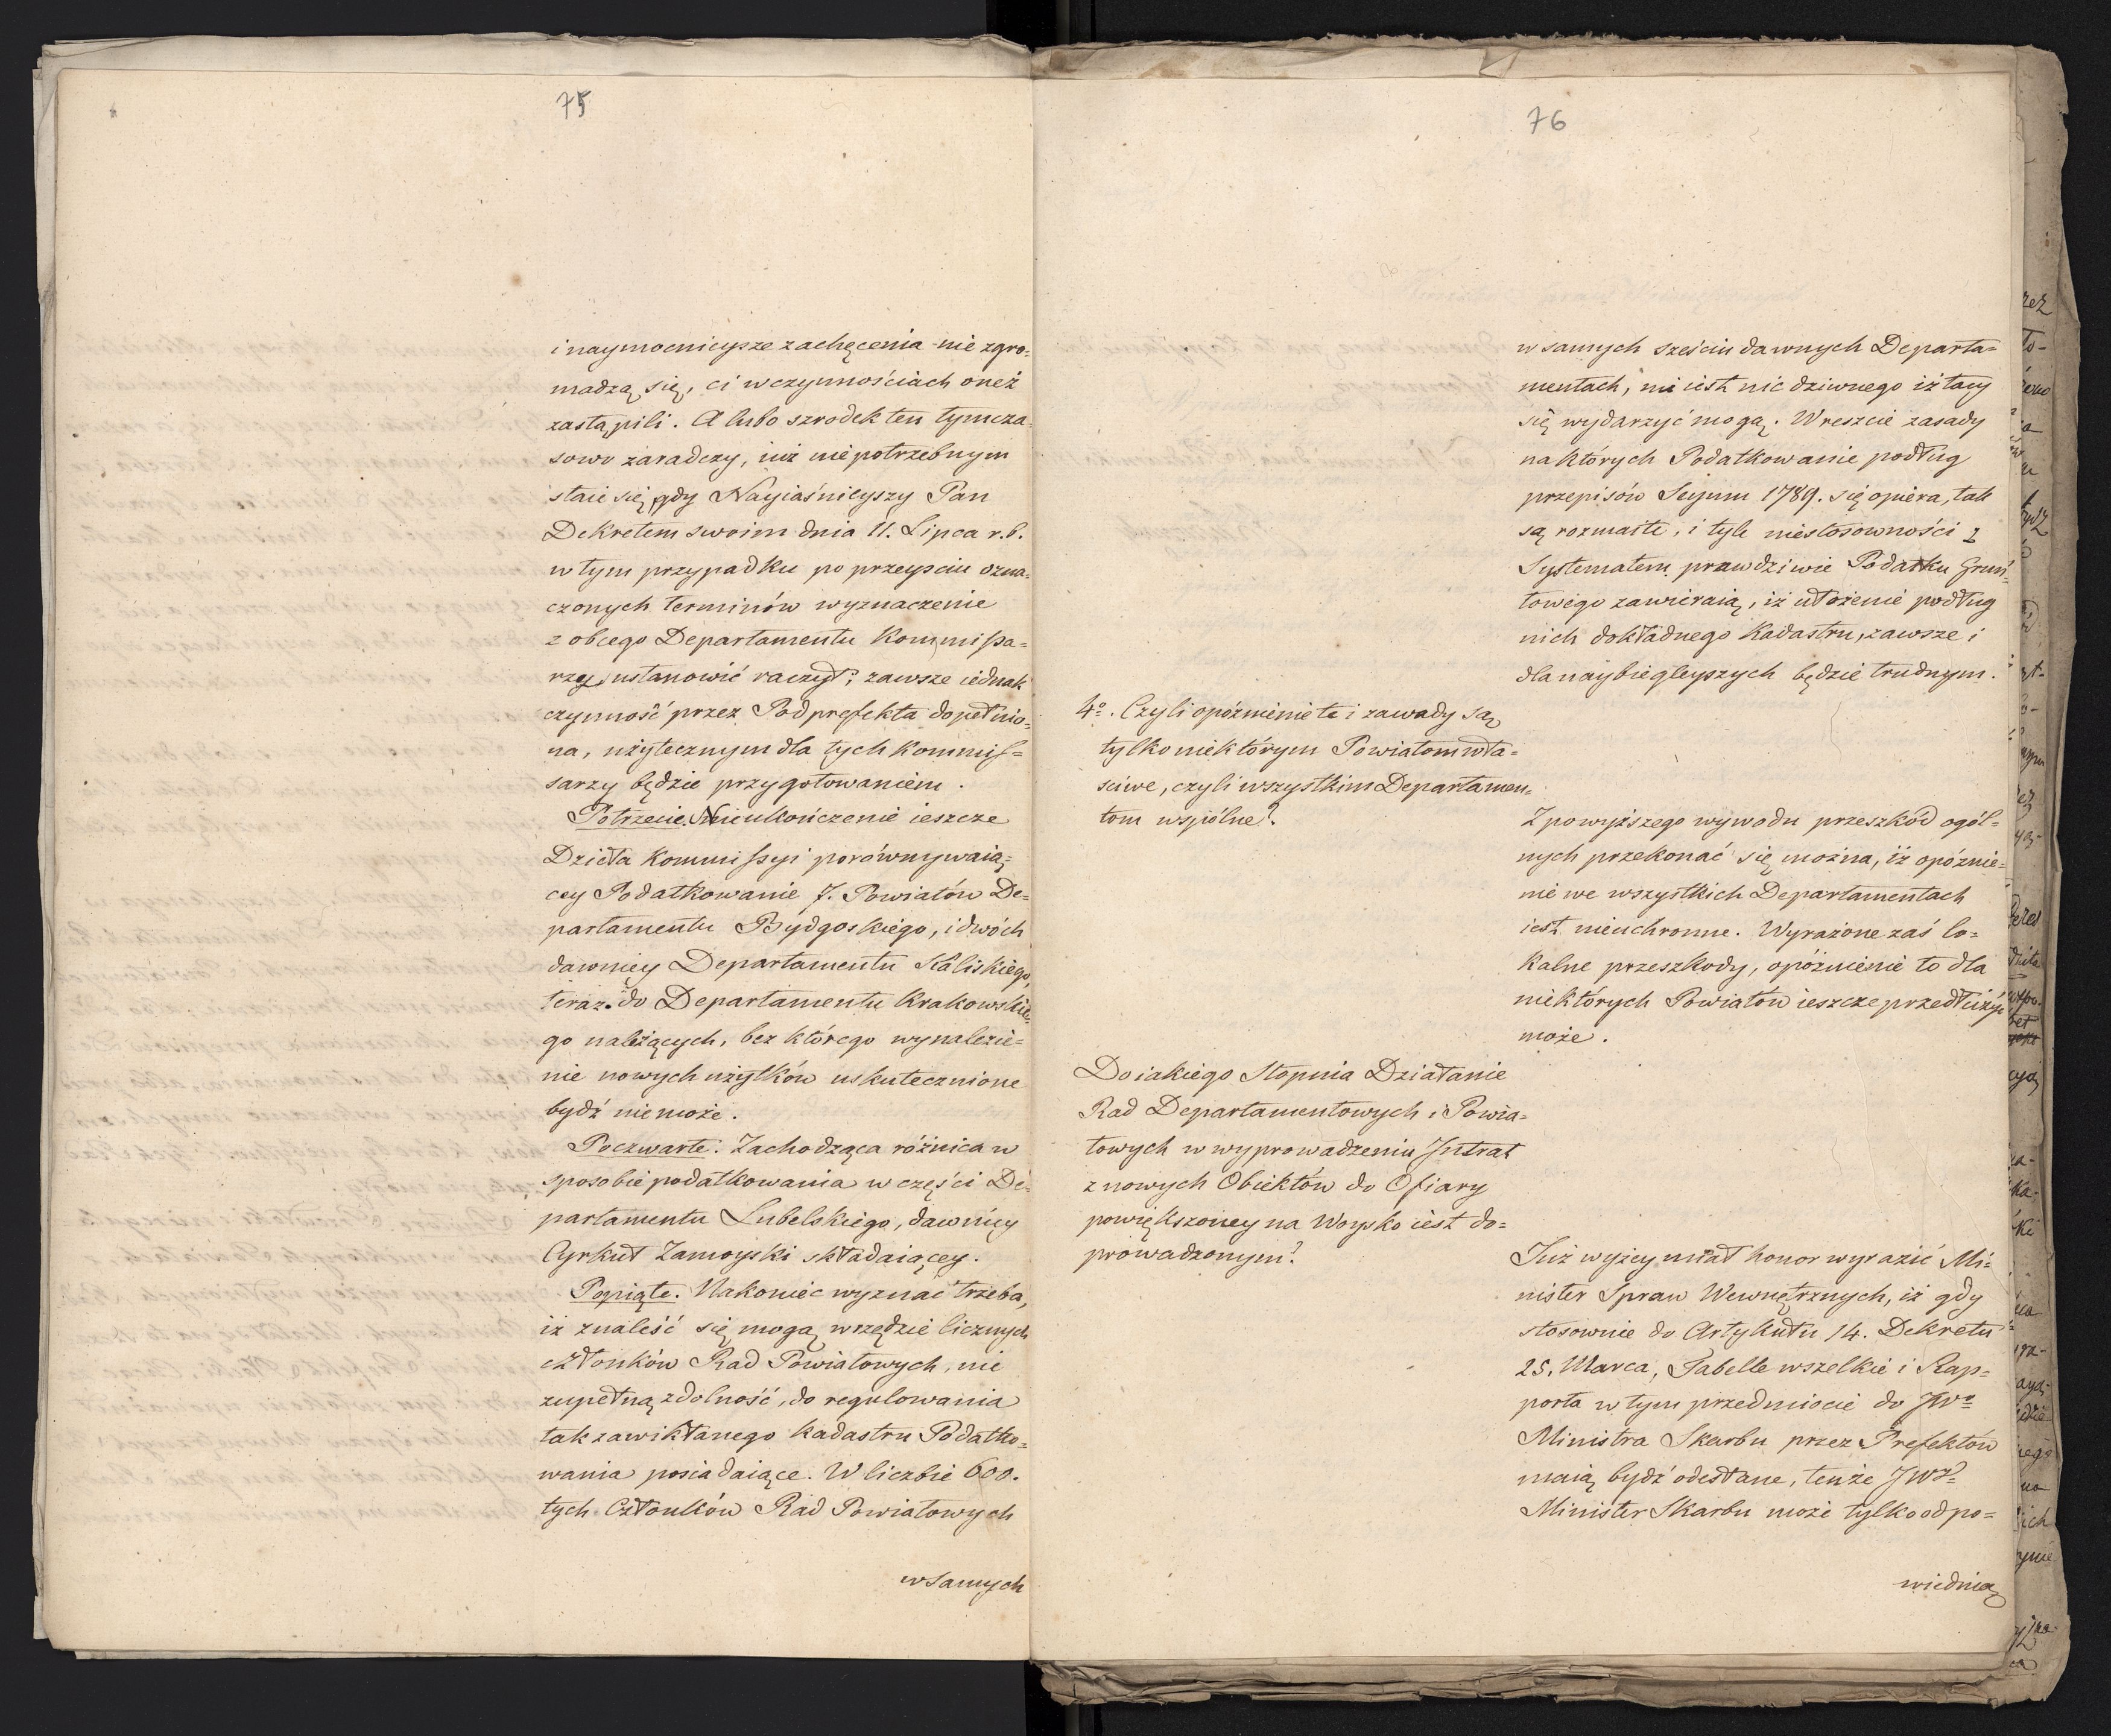 75
i naymocnieysze zachęcenia nie zgro=
madzą się, ci w czynnościach oneż
zastąpili. A lubo szrodek ten tymcza=
sowo zaradczy, iuż niepotrzebnym
staie się, gdy Nayiaśnieyszy Pan
Dekretem swoim dnia 11. Lipca r. b.
w tym przypadku po przeyściu ozna=
czonych terminów wyznaczenie
z obcego Departamentu Kommissa=
rzy ustanowić raczył; zawsze iednak
czynność przez Podprefekta dopełnio=
na, użytecznym dla tych Kommis=
sarzy będzie przygotowaniem.
Potrzecie. Nieukończenie ieszcze
Dzieła Kommissyi porównywaią=
cey Podatkowanie 7. Powiatów De=
partamentu Bydgoskiego, i dwóch
dawniey Departamentu Kaliskiego,
teraz do Departamentu Krakowskie=
go należących, bez którego wynalezie=
nie nowych użytków uskutecznione
bydź nie może.
Poczwarte. Zachodząca różnica w
sposobie podatkowania w części De=
partamentu Lubelskiego, dawniey
Cyrkuł Zamoyski składaiącey.
Popiąte. Nakoniec wyznać trzeba,
iż znaleść się mogą wszędzie licznych
członków Rad Powiatowych, nie
zupełną zdolność, do regulowania
tak zawikłanego Kadastru Podatko=
wania posiadaiące. W liczbie 600.
tych Członków Rad Powiatowych
w samych
76
w samych sześciu dawnych Departa=
mentach, nie iest nic dziwnego iż tacy
się wydarzyć mogą. Wreszcie zasady
na których Podatkowanie podług
przepisów Seymu 1789. się opiera, tak
są rozmaite, i tyle niestosowności z
Systematem prawdziwie Podatku Grun=
towego zawieraią, iż ułożenie podług
nich dokładnego Kadastru, zawsze i
dla naybiegleyszych będzie trudnym.
4º. Czyli opóźnienie te i zawady są
tylko niektórym Powiatom wła=
ściwe, czyli wszystkim Departamen=
tom wspólne?
Z powyższego wywodu przeszkód ogól=
nych przekonać się można, iż opóźnie=
nie we wszystkich Departamentach
iest nieuchronne. Wyrażone zaś lo=
kalne przeszkody, opóźnienie to dla
niektórych Powiatów ieszcze przedłużyć
może.
Do iakiego Stopnia Działanie
Rad Departamentowych i Powia=
towych w wyprowadzeniu Intrat
z nowych Obiektów do Ofiary
powiększoney na Woysko iest do=
prowadzonym?
Już wyżey miał honor wyrazić Mi=
nister Spraw Wewnętrznych, iż gdy
stosownie do Artykułu 14. Dekretu
25. Marca, Tabelle wszelkie i Rap=
porta w tym przedmiocie do JWº
Ministra Skarbu przez Prefektów
maią bydź odesłane, tenże JW
Minister Skarbu może tylko odpo=
wiednią